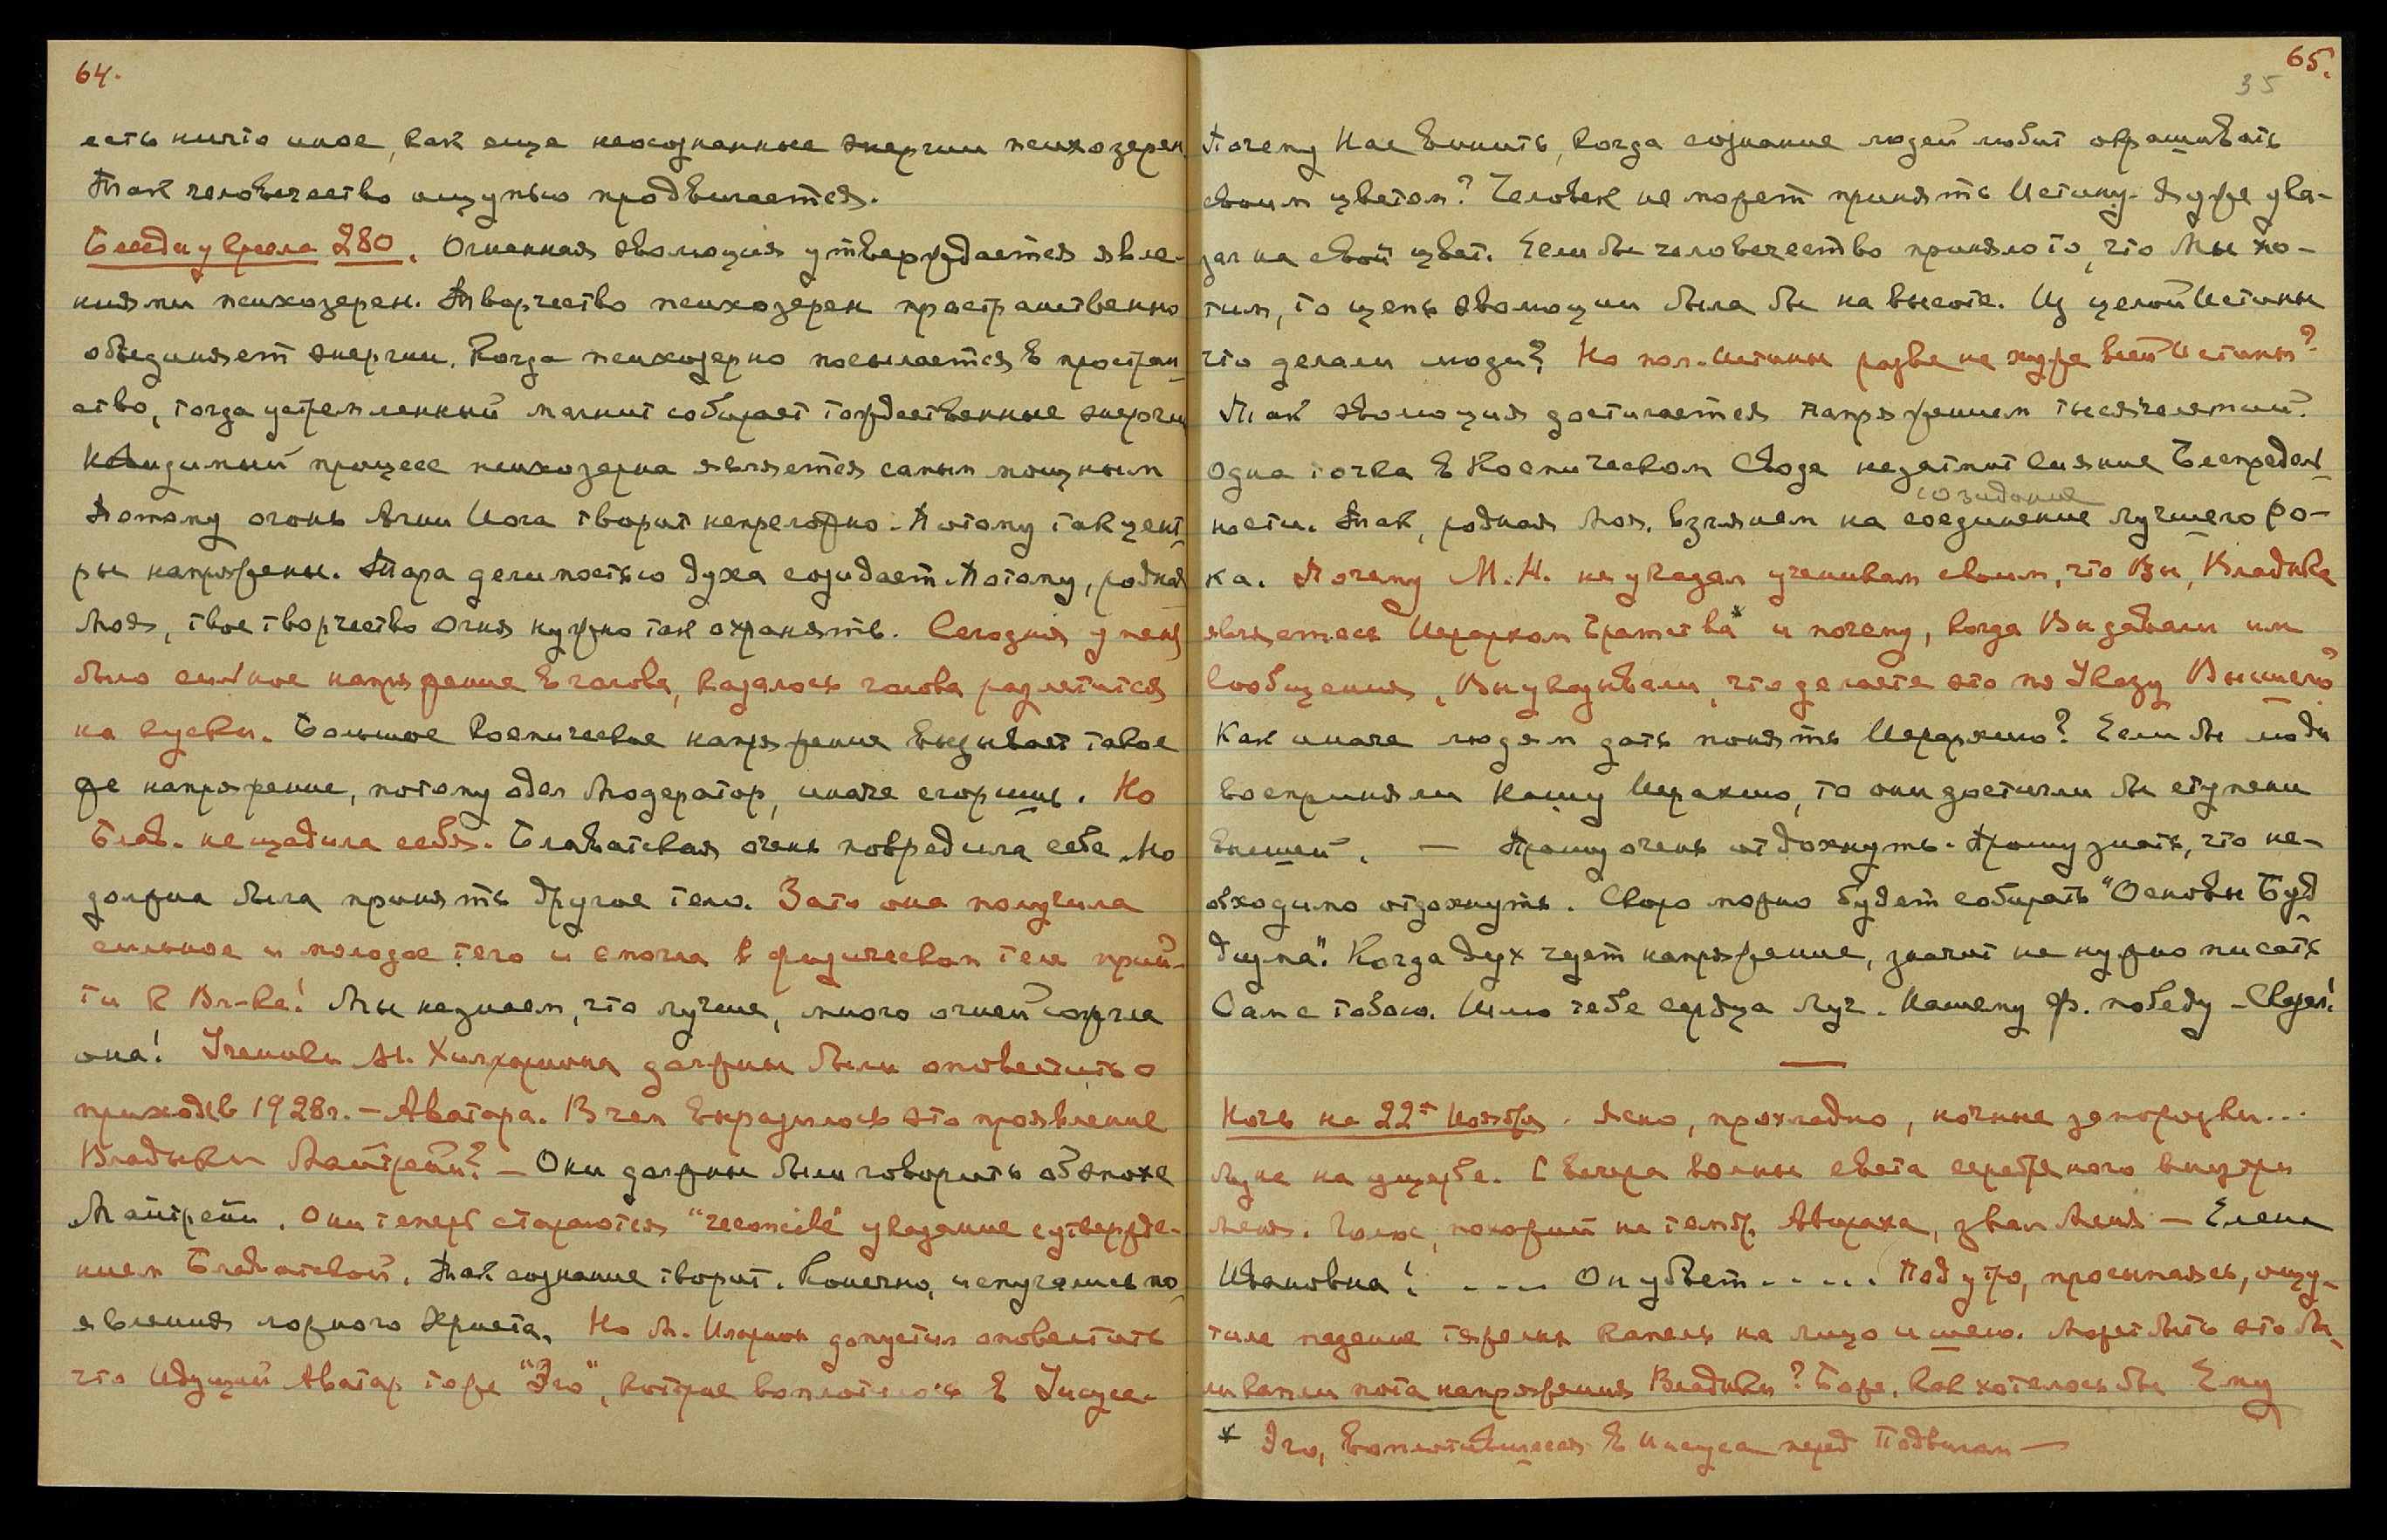 64.
есть ничто иное, как еще неосознанные энергии психозерен
Так человечество ощупью продвигается.
Беседы у кресла 280. Огненная эволюция утверждается явле-
ниями психозерен. Творчество психозерен пространственно
объединяет энергии. Когда психозерно посылается в простран-
ство, тогда устремленный магнит собирает тождественные энергии
Невидимый процесс психозерна является самым мощным
Потому огонь Агни Йога творит непреложно. Потому так цент-
ры напряжены. Тара делимостью духа созидает. Потому, родная
Моя, твое творчество Огня нужно так охранять. Сегодня у меня
было сильное напряжение в голове, казалось голова разлетится
на куски. Большое Космическое напряжение вызывает такое
же напряжение, потому одел Модератор, иначе сгоришь. Но
Блав. не щадила себя. Блаватская очень повредила себе. Но
должна была принять другое тело. Зато она получила
сильное и молодое тело и смогла в физическом теле прий-
ти к Вл-ке! Мы не знаем, что лучше, много огней сожгла
она! Ученики М. Хиллариона должны были оповестить о
приходе в 1928 г. – Аватара. В чем выразилось это проявление
Владыки Майтрейи? – Они должны были говорить об эпохе
Майтрейи. Они теперь стараются "reconcile" указание с утвержде-
нием Блаватской. Так сознание творит. Конечно, испугались по-
явления ложного Христа. Но М. Иларион допустил оповестить
что Идущий Аватар тоже "Эго", которое воплотилось в Иисусе.
65.
35
Почему Нас винить, когда сознание людей любит окрашивать
своим цветом? Человек не может принять Истину. Я уже ука-
зал на свой цвет. Если бы человечество приняло то, что Мы хо-
тим, то цепь эволюции была бы на высоте. Из целой Истины
что делали люди? Но пол-Истины разве не хуже всей Истины?
Так эволюция достигается напряжением тысячелетий.
Одна точка в Космическом Своде не затмит сияние Беспредель-
созидание
ности. Так, родная Моя, взглянем на соединение лучшего ро-
ка. Почему М. И. не указал ученикам своим, что Вы, Владыка
являетесь Иерархом Братства* и почему, когда Вы давали им
сообщения, Вы указывали, что делаете это по Указу Высшего
Как иначе людям дать понять Иерархию? Если бы люди
восприняли Нашу Иерархию, то они достигли бы ступени
высшей. — Прошу очень отдохнуть. Прошу знать, что не-
обходимо отдохнуть. Скоро можно будет собирать "Основы Буд-
дизма". Когда дух чует напряжение, значит не нужно писать
Сам с тобою. Шлю тебе сердца луч. Нашему Ф. победу – Сказал!
Ночь на 22е Ноября. Ясно, прохладно, ночные заморозки...
Луна на ущербе. С вечера волны света серебряного внутри
меня. Голос, похожий на тембр Авираха, звал меня – Елена
Ивановна! .... Он убьет..... Под утро, просыпаясь, ощу-
тила падение тяжелых капель на лицо и шею. Может быть это бы-
ли капли пота напряжения Владыки? Боже, как хотелось бы Ему
* Эго, воплотившееся в Иисуса перед Подвигом —